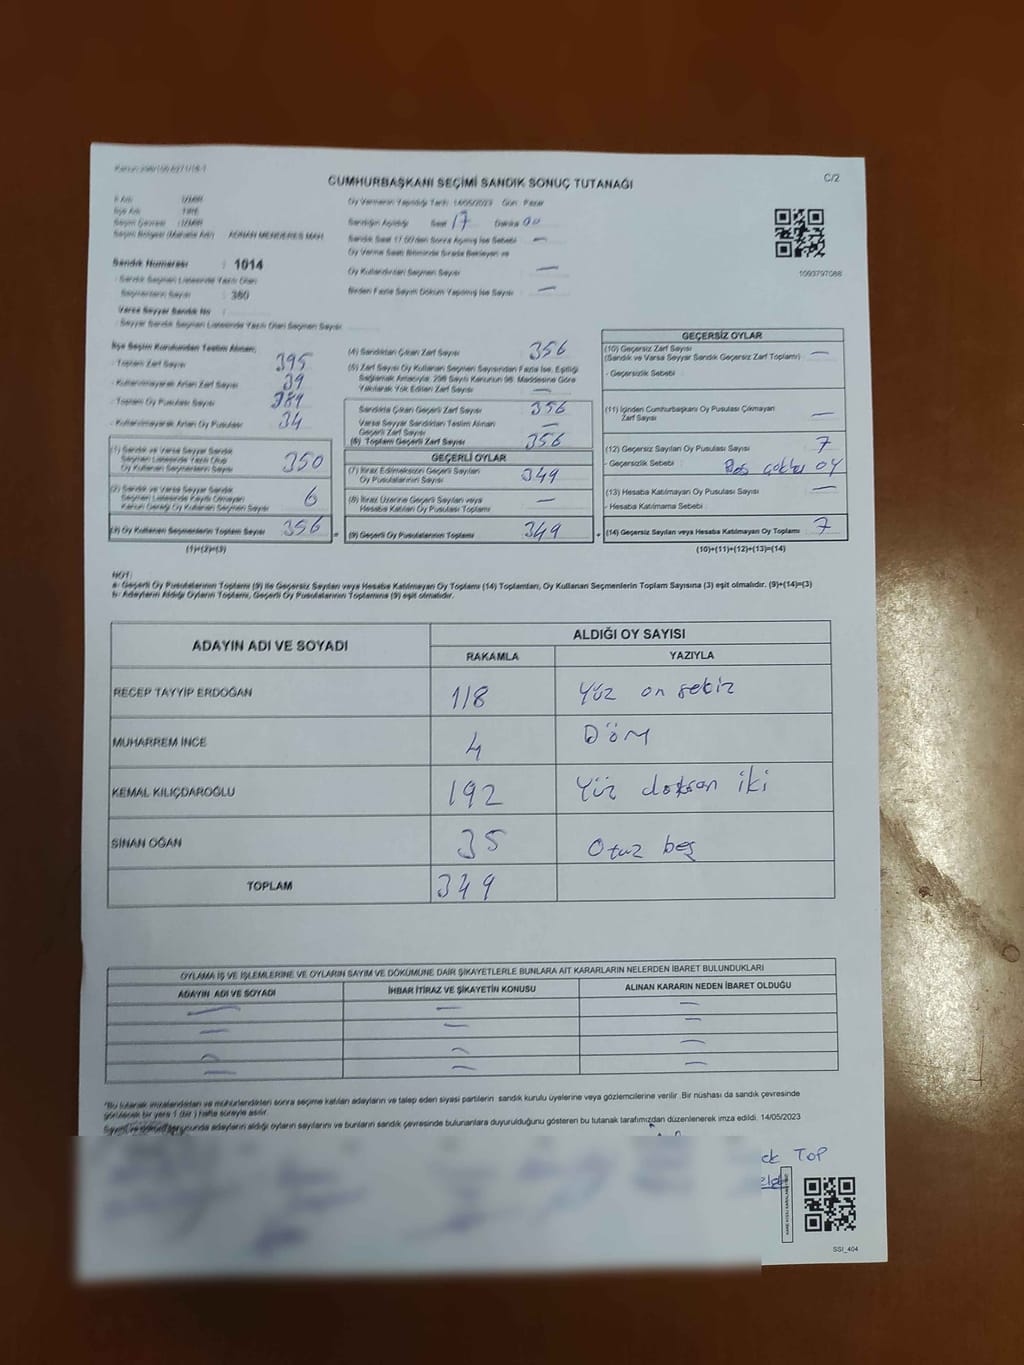 CUMHURBAŞKANI SEÇİMİ SANDIK SONUÇ TUTANAĞI
C/2
İl Adı : İZMİR
İlçe Adı
Seçim Çevresi : İZMİR
Seçim Bölgesi (Mahalle Adı) : ADNAN MENDERES MAH.
Sandık Numarası : 1014
Sandık Seçmen Listesinde Yazılı Olan
Seçmenlerin Sayısı : 380
Varsa Seyyar Sandık No :
Seyyar Sandık Seçmen Listesinde Yazılı Olan Seçmen Sayısı :
Oy Vermenin Yapıldığı Tarih: 14/05/2023 Gün : Pazar
Sandığın Açıldığı Saat 17 Dakika 00
Sandık Saat 17.00'den Sonra Açılmış İse Sebebi —
Oy Verme Saati Bitiminde Sırada Bekleyen ve
Oy Kullandırılan Seçmen Sayısı —
Birden Fazla Sayım Döküm Yapılmış İse Sayısı —
1093797088
İlçe Seçim Kurulundan Teslim Alınan;
- Toplam Zarf Sayısı 395
- Kullanılmayarak Artan Zarf Sayısı 39
- Toplam Oy Pusulası Sayısı 389
- Kullanılmayarak Artan Oy Pusulası 34
(1) Sandık ve Varsa Seyyar Sandık
Seçmen Listesinde Yazılı Olup
Oy Kullanan Seçmenlerin Sayısı 350
(2) Sandık ve Varsa Seyyar Sandık
Seçmen Listesinde Kayıtlı Olmayan
Kanun Gereği Oy Kullanan Seçmen Sayısı 6
(3) Oy Kullanan Seçmenlerin Toplam Sayısı 356
(1)+(2)=(3)
(4) Sandıktan Çıkan Zarf Sayısı 356
(5) Zarf Sayısı Oy Kullanan Seçmen Sayısından Fazla İse, Eşitliği
Sağlamak Amacıyla, 298 Sayılı Kanunun 98. Maddesine Göre
Yakılarak Yok Edilen Zarf Sayısı —
Sandıkta Çıkan Geçerli Zarf Sayısı 356
Varsa Seyyar Sandıktan Teslim Alınan
Geçerli Zarf Sayısı —
(6) Toplam Geçerli Zarf Sayısı 356
GEÇERLİ OYLAR
(7) İtiraz Edilmeksizin Geçerli Sayılan
Oy Pusulalarının Sayısı 349
(8) İtiraz Üzerine Geçerli Sayılan veya
Hesaba Katılan Oy Pusulası Toplamı —
= (9) Geçerli Oy Pusulalarının Toplamı 349
GEÇERSİZ OYLAR
(10) Geçersiz Zarf Sayısı
(Sandık ve Varsa Seyyar Sandık Geçersiz Zarf Toplamı) —
- Geçersizlik Sebebi :
(11) İçinden Cumhurbaşkanı Oy Pusulası Çıkmayan
Zarf Sayısı —
(12) Geçersiz Sayılan Oy Pusulası Sayısı 7
- Geçersizlik Sebebi : Boş oy
(13) Hesaba Katılmayan Oy Pusulası Sayısı —
- Hesaba Katılmama Sebebi :
+ (14) Geçersiz Sayılan veya Hesaba Katılmayan Oy Toplamı 7
(10)+(11)+(12)+(13)=(14)
NOT:
a- Geçerli Oy Pusulalarının Toplamı (9) ile Geçersiz Sayılan veya Hesaba Katılmayan Oy Toplamı (14) Toplamları, Oy Kullanan Seçmenlerin Toplam Sayısına (3) eşit olmalıdır. (9)+(14)=(3)
b- Adayların Aldığı Oyların Toplamı, Geçerli Oy Pusulalarının Toplamına (9) eşit olmalıdır.
ADAYIN ADI VE SOYADI
ALDIĞI OY SAYISI
RAKAMLA YAZIYLA
RECEP TAYYİP ERDOĞAN 118 Yüz on sekiz
MUHARREM İNCE 4 Dört
KEMAL KILIÇDAROĞLU 192 Yüz doksan iki
SİNAN OĞAN 35 Otuz beş
TOPLAM 349
OYLAMA İŞ VE İŞLEMLERİNE VE OYLARIN SAYIM VE DÖKÜMÜNE DAİR ŞİKAYETLERLE BUNLARA AİT KARARLARIN NELERDEN İBARET BULUNDUKLARI
ADAYIN ADI VE SOYADI İHBAR İTİRAZ VE ŞİKAYETİN KONUSU ALINAN KARARIN NEDEN İBARET OLDUĞU
— — —
— — —
— — —
— — —
*Bu tutanak imzalandıktan ve mühürlendikten sonra seçime katılan adayların ve talep eden siyasi partilerin sandık kurulu üyelerine veya gözlemcilerine verilir. Bir nüshası da sandık çevresinde
görülecek bir yere 1 (bir) hafta süreyle asılır.
Sayım ve döküm sonucunda adayların aldığı oyların sayılarını ve bunların sandık çevresinde bulunanlara duyurulduğunu gösteren bu tutanak tarafımızdan düzenlenerek imza edildi. 14/05/2023
TOP
SSI_404